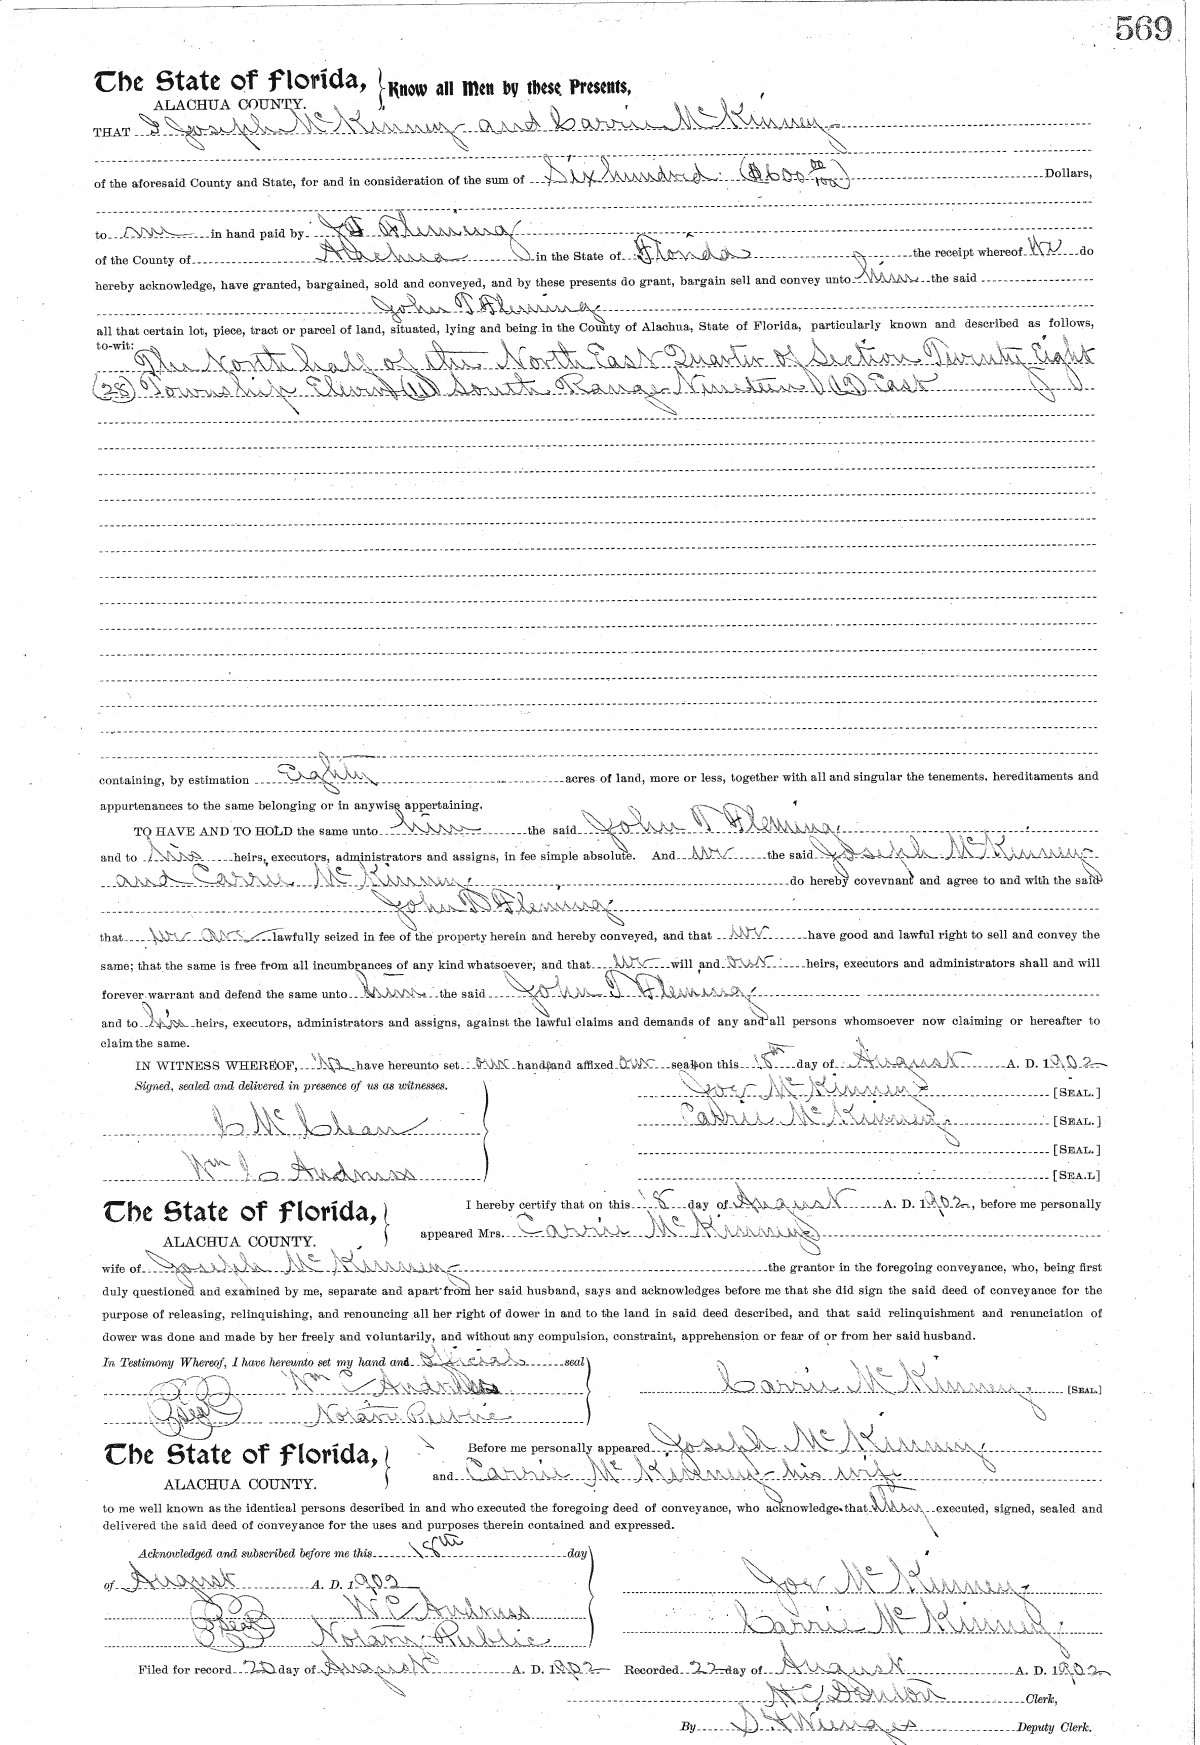 569
The State of Florida, } Know all Men by these Presents,
ALACHUA COUNTY.
THAT I Joseph McKinney and Carrie McKinney
of the aforesaid County and State, for and in consideration of the sum of Six hundred ($600 00/100) Dollars,
to me in hand paid by J T Fleming
of the County of Alachua in the State of Florida the receipt whereof We do
hereby acknowledge, have granted, bargained, sold and conveyed, and by these presents do grant, bargain sell and convey unto him the said
John T Fleming
all that certain lot, piece, tract or parcel of land, situated, lying and being in the County of Alachua, State of Florida, particularly known and described as follows,
to-wit:
The North half of the North East Quarter of Section Twenty Eight
(28) Township Eleven (11) South Range Nineteen (19) East
containing, by estimation Eighty acres of land, more or less, together with all and singular the tenements, hereditaments and
appurtenances to the same belonging or in anywise appertaining.
TO HAVE AND TO HOLD the same unto him the said John T Fleming
and to his heirs, executors, administrators and assigns, in fee simple absolute. And we the said Joseph McKinney
and Carrie McKinney do hereby covevnant and agree to and with the said
John T Fleming
that we are lawfully seized in fee of the property herein and hereby conveyed, and that we have good and lawful right to sell and convey the
same; that the same is free from all incumbrances of any kind whatsoever, and that we will and our heirs, executors and administrators shall and will
forever warrant and defend the same unto him the said John T Fleming
and to his heirs, executors, administrators and assigns, against the lawful claims and demands of any and all persons whomsoever now claiming or hereafter to
claim the same.
IN WITNESS WHEREOF, We have hereunto set our hand and affixed our seal on this 18th day of August A. D. 1902
Signed, sealed and delivered in presence of us as witnesses.
Joe McKinney [SEAL.]
C McClean
Carrie McKinney [SEAL.]
[SEAL.]
Wm C Andruss
[SEA.L]
The State of Florida, }
ALACHUA COUNTY.
I hereby certify that on this 18 day of August A. D. 1902, before me personally
appeared Mrs. Carrie McKinney
wife of Joseph McKinney the grantor in the foregoing conveyance, who, being first
duly questioned and examined by me, separate and apart from her said husband, says and acknowledges before me that she did sign the said deed of conveyance for the
purpose of releasing, relinquishing, and renouncing all her right of dower in and to the land in said deed described, and that said relinquishment and renunciation of
dower was done and made by her freely and voluntarily, and without any compulsion, constraint, apprehension or fear of or from her said husband.
In Testimony Whereof, I have hereunto set my hand and official seal
Wm C Andruss
Carrie McKinney [SEAL.]
Seal Notary Public
The State of Florida, }
ALACHUA COUNTY.
Before me personally appeared Joseph McKinney
and Carrie McKinney his wife
to me well known as the identical persons described in and who executed the foregoing deed of conveyance, who acknowledge that they executed, signed, sealed and
delivered the said deed of conveyance for the uses and purposes therein contained and expressed.
Acknowledged and subscribed before me this 18th day
of August A. D. 1902
Joe McKinney
W C Andruss
Carrie McKinney
Seal Notary Public
Filed for record 20 day of August A. D. 1902 Recorded 22 day of August A. D. 1902
H C Denton Clerk,
By S H Wienges Deputy Clerk.